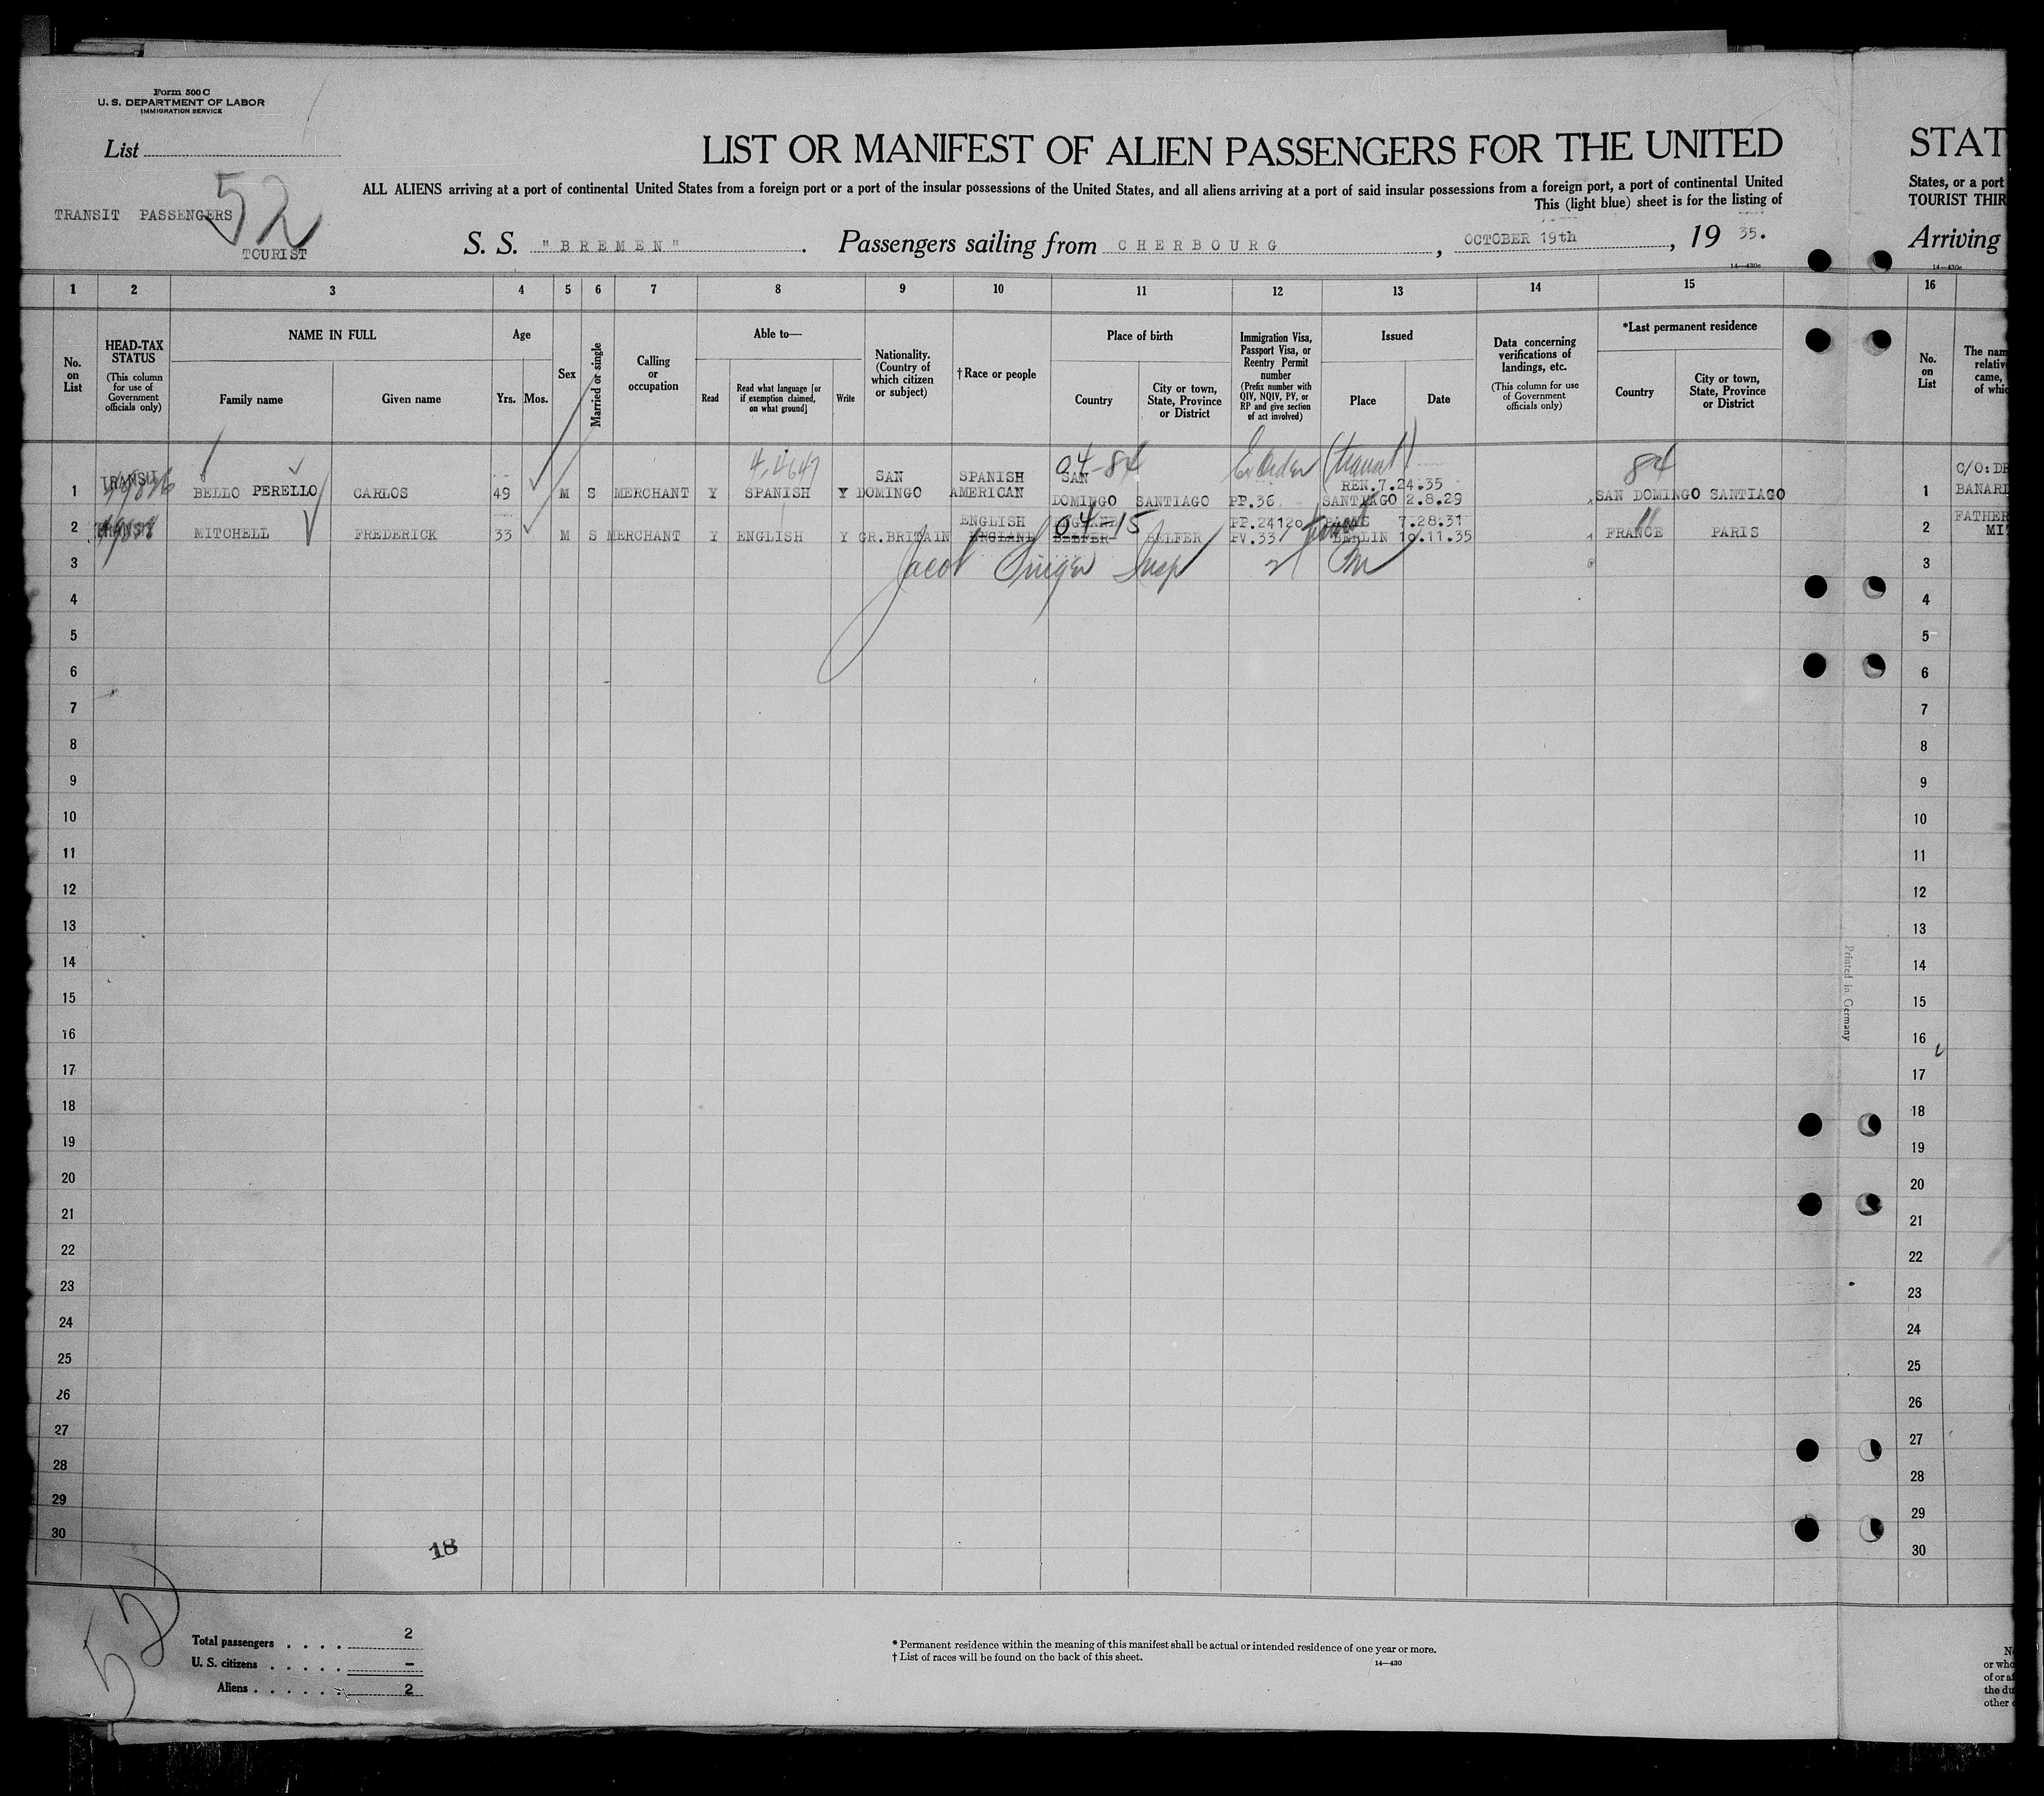 Form 500 C
U. S. DEPARTMENT OF LABOR
IMMIGRATION SERVICE
List
52
TRANSIT PASSENGERS
TOURIST
LIST OR MANIFEST OF ALIEN PASSENGERS FOR THE UNITED
ALL ALIENS arriving at a port of continental United States from a foreign port or a port of the insular possessions of the United States, and all aliens arriving at a port of said insular possessions from a foreign port, a port of continental United
This (light blue) sheet is for the listing of
S. S. "BREMEN". Passengers sailing from CHERBOURG, OCTOBER 19th, 19 35.
14—430c
STAT
States, or a port
TOURIST THIR
Arriving
14—430c
1 2 3 4 5 6 7 8 9 10 11 12 13 14 15 16
No. on List
HEAD-TAX STATUS (This column for use of Government officials only)
NAME IN FULL
Family name
Given name
Age
Yrs.
Mos.
Sex
Married or single
Calling or occupation
Able to—
Read
Read what language [or if exemption claimed, on what ground]
Write
Nationality. (Country of which citizen or subject)
†Race or people
Place of birth
Country
City or town, State, Province or District
Immigration Visa, Passport Visa, or Reentry Permit number (Prefix number with QIV, NQIV, PV, or RP and give section of act involved)
Issued
Place
Date
Data concerning verifications of landings, etc. (This column for use of Government officials only)
*Last permanent residence
Country
City or town, State, Province or District
No. on List
The nam
relativ
came,
of whic
04-84
(transit)
84
1 TRANSIT BELLO PERELLO CARLOS 49 M S MERCHANT Y SPANISH Y SAN DOMINGO SPANISH AMERICAN SAN DOMINGO SANTIAGO PP.36 REN.7.24.35 SANTIAGO 2.8.29 SAN DOMINGO SANTIAGO 1 C/O: DR
BANARD
04-15
11
2 MITCHELL FREDERICK 33 M S MERCHANT Y ENGLISH Y GR.BRITAIN ENGLISH ENGLAND BELFER PP.24120 PARIS 7.28.31 PV.33 BERLIN 10.11.35 FRANCE PARIS 2 FATHER
MIT
Jacob Singer Insp
3 3
4 4
5 5
6 6
7 7
8 8
9 9
10 10
11 11
12 12
13 13
14 14
15 15
16 16
17 17
18 18
19 19
20 20
21 21
22 22
23 23
24 24
25 25
26 26
27 27
28 28
29 29
30 30
Printed in Germany
18
52
Total passengers . . . . 2
U. S. citizens . . . . . –
Aliens . . . . . . 2
* Permanent residence within the meaning of this manifest shall be actual or intended residence of one year or more.
† List of races will be found on the back of this sheet.
14—430
or who
of or a
the du
other